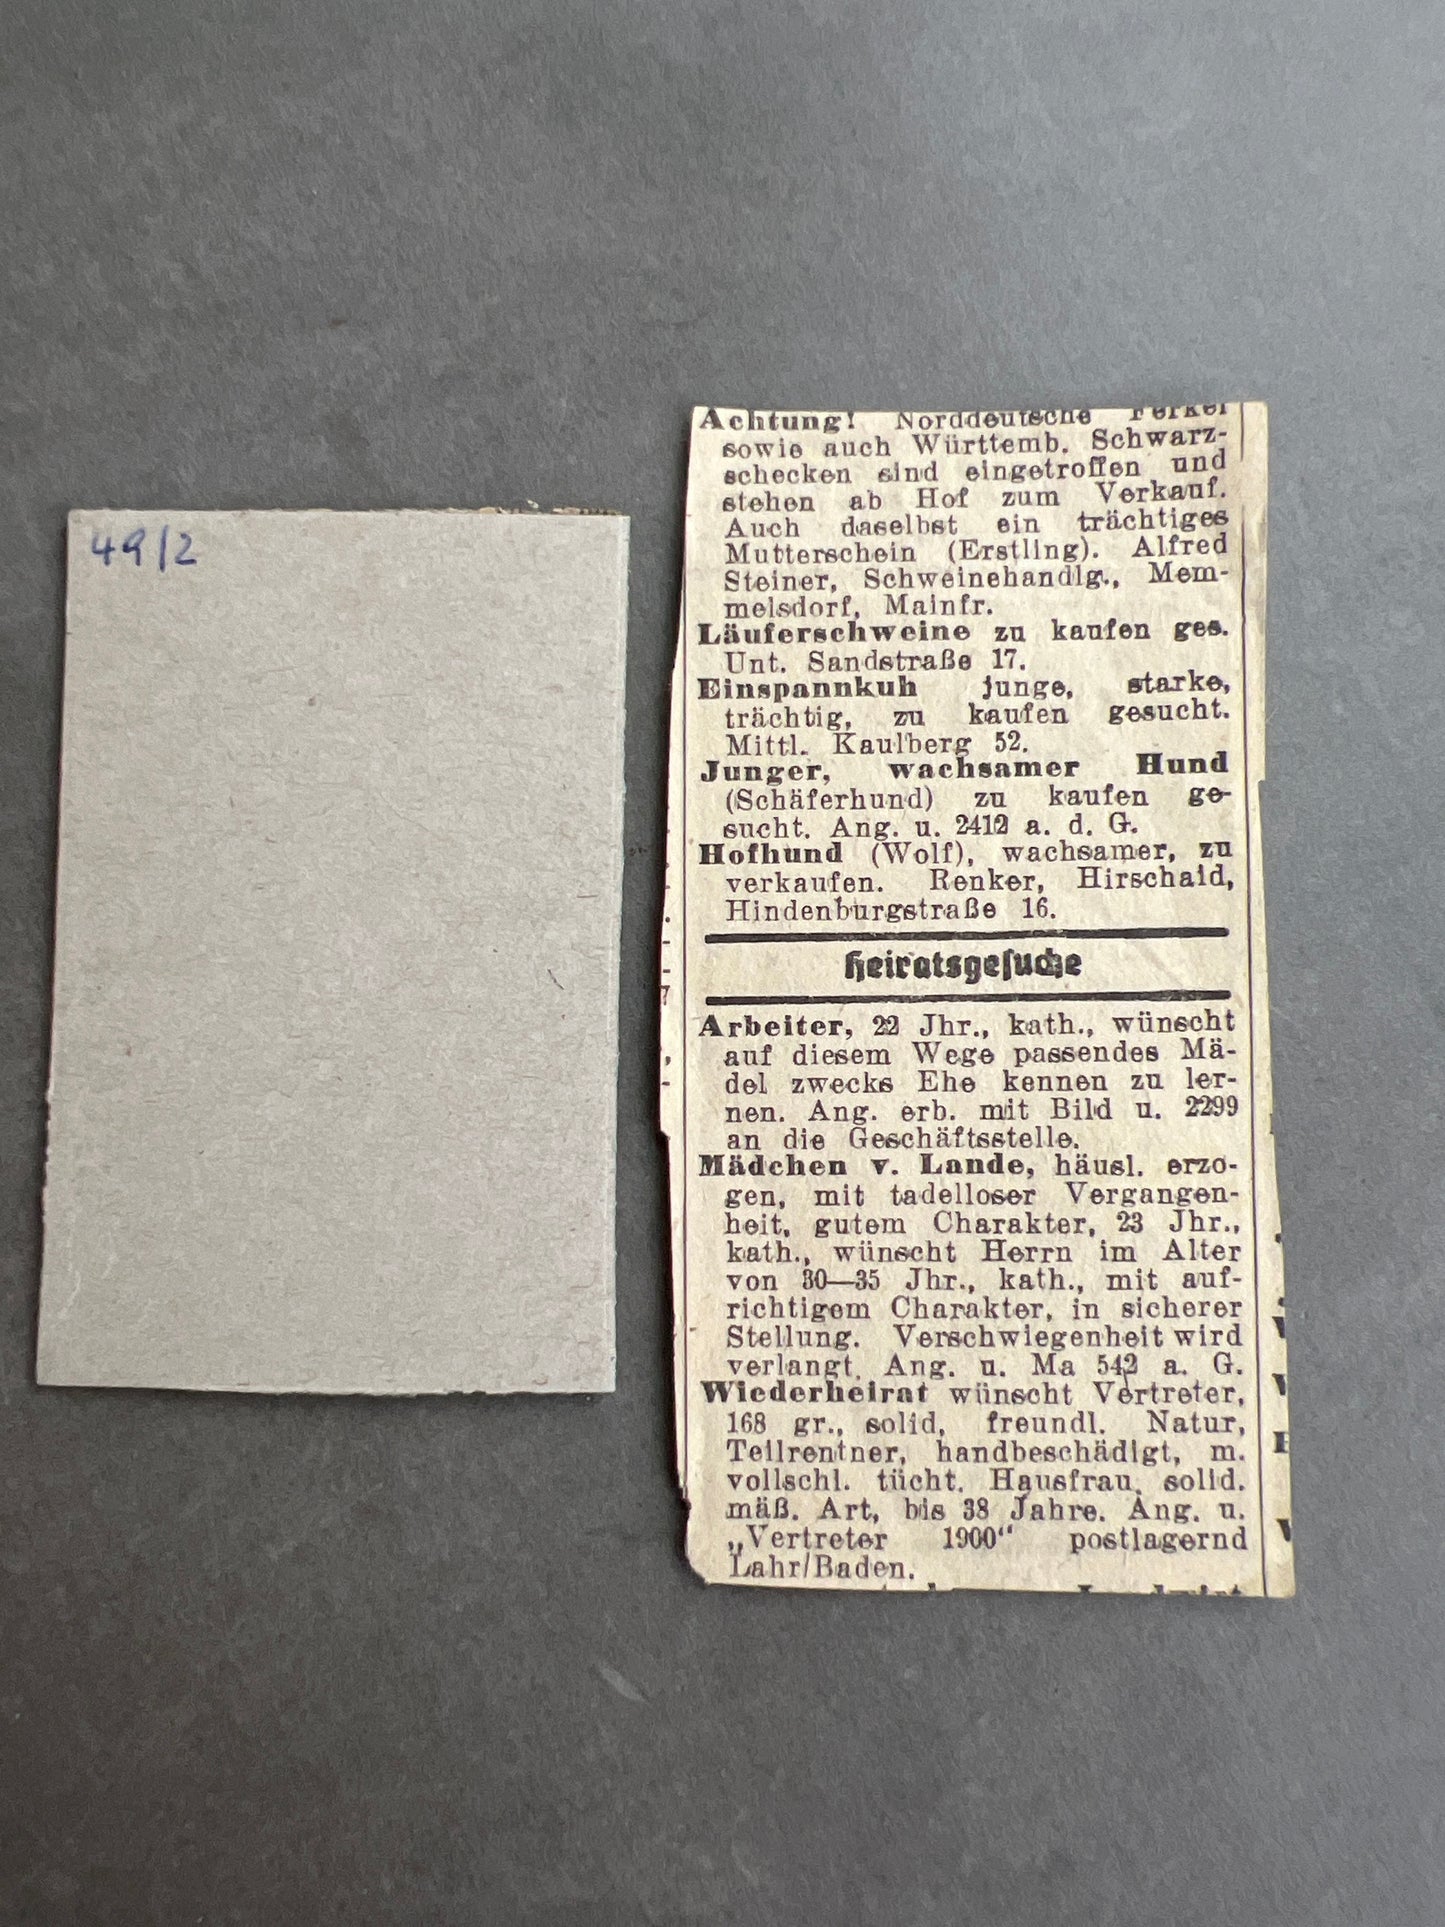 49/2
Achtung! Norddeutsche Ferkel
sowie auch Württemb. Schwarz-
schecken sind eingetroffen und
stehen ab Hof zum Verkauf.
Auch daselbst ein trächtiges
Mutterschein (Erstling). Alfred
Steiner, Schweinehandlg., Mem-
melsdorf, Mainfr.
Läuferschweine zu kaufen ges.
Unt. Sandstraße 17.
Einspannkuh junge, starke,
trächtig, zu kaufen gesucht.
Mittl. Kaulberg 52.
Junger, wachsamer Hund
(Schäferhund) zu kaufen ge-
sucht. Ang. u. 2412 a. d. G.
Hofhund (Wolf), wachsamer, zu
verkaufen. Renker, Hirschaid,
Hindenburgstraße 16.
Heiratsgesuche
Arbeiter, 22 Jhr., kath., wünscht
auf diesem Wege passendes Mä-
del zwecks Ehe kennen zu ler-
nen. Ang. erb. mit Bild u. 2299
an die Geschäftsstelle.
Mädchen v. Lande, häusl. erzo-
gen, mit tadelloser Vergangen-
heit, gutem Charakter, 23 Jhr.,
kath., wünscht Herrn im Alter
von 30—35 Jhr., kath., mit auf-
richtigem Charakter, in sicherer
Stellung. Verschwiegenheit wird
verlangt. Ang. u. Ma 542 a. G.
Wiederheirat wünscht Vertreter,
168 gr., solid, freundl. Natur,
Teilrentner, handbeschädigt, m.
vollschl. tücht. Hausfrau, solid.
mäß. Art, bis 38 Jahre. Ang. u.
„Vertreter 1900“ postlagernd
Lahr/Baden.